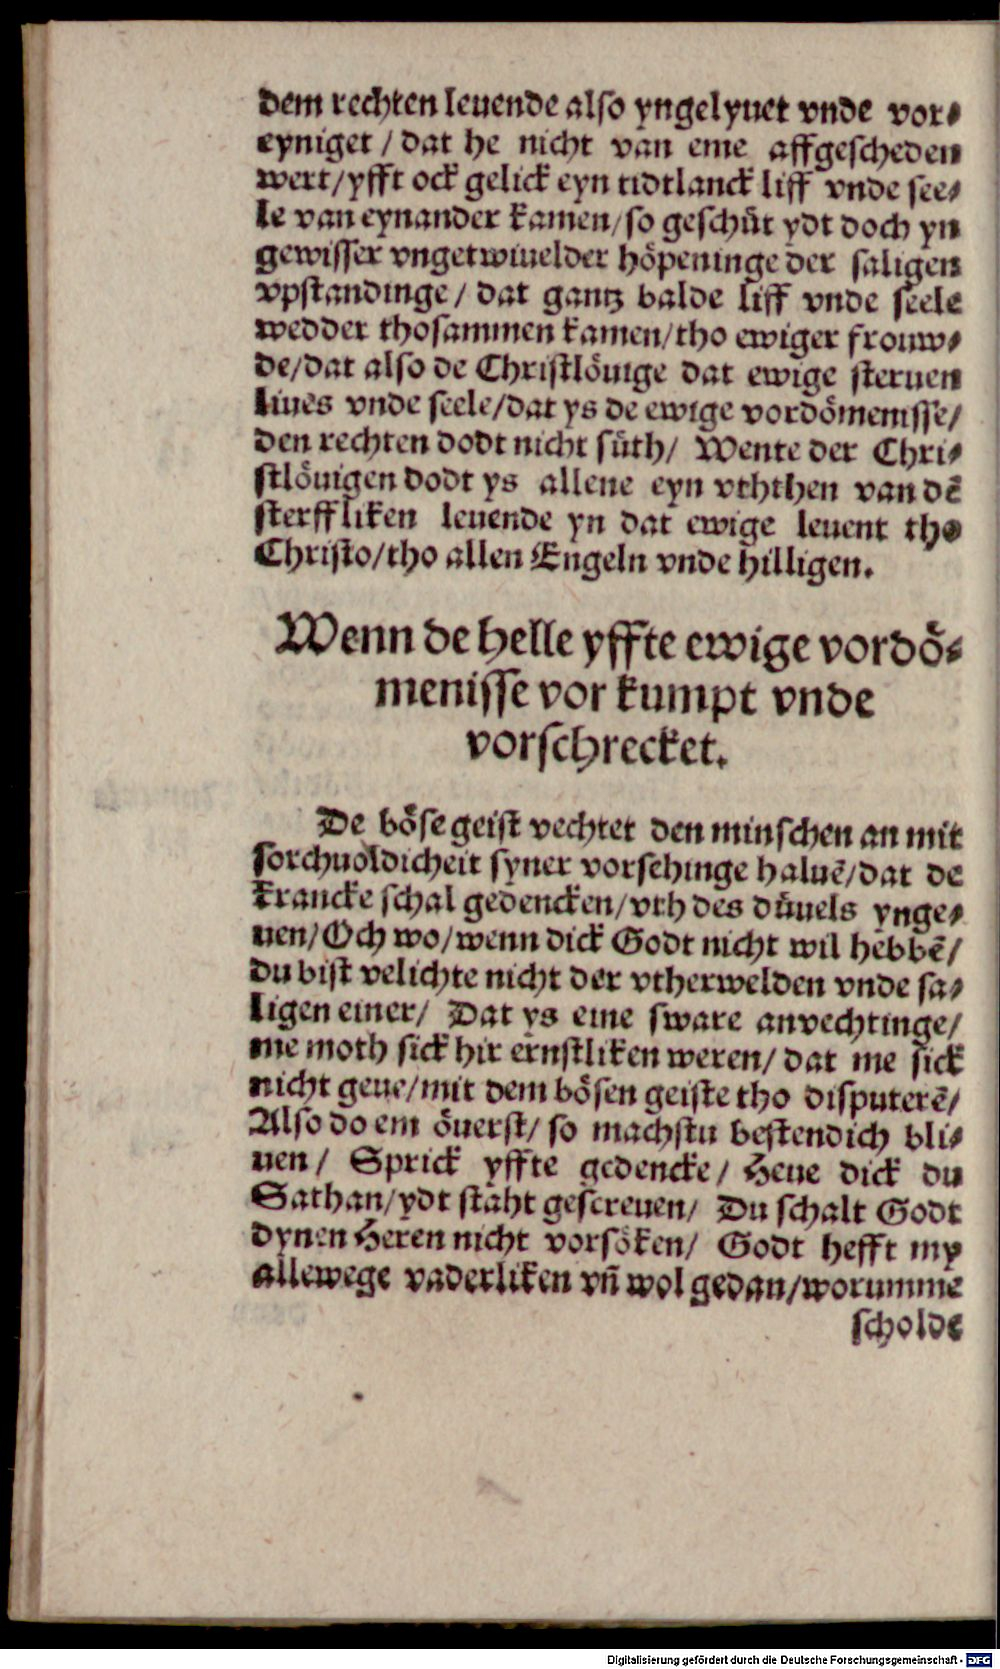 dem rechten leuende also yngelyuet vnde vor⸗
eyniget / dat he nicht van eme affgescheden
wert/yfft ock gelick eyn tidtlanck liff vnde see⸗
le van eynander kamen/so geschüt ydt doch yn
gewisser vngetwiuelder höpeninge der saligen
vpstandinge/ dat gantz balde liff vnde seele
wedder thosammen kamen/tho ewiger frouw⸗
de/dat also de Christlöuige dat ewige steruen
liues vnde seele/dat ys de ewige vordömenisse/
den rechten dodt nicht süth/ Wente der Chri⸗
stlöuigen dodt ys allene eyn vththen van dē
sterffliken leuende yn dat ewige leuent tho
Christo/tho allen Engeln vnde hilligen.
Wenn de helle yffte ewige vordö⸗
menisse vor kumpt vnde
vorschrecket.
De böse geist vechtet den minschen an mit
sorchuoldicheit syner vorsehinge haluē/dat de
krancke schal gedencken/vth des düuels ynge⸗
uen/Och wo/wenn dick Godt nicht wil hebbē/
du bist velichte nicht der vtherwelden vnde sa⸗
ligen einer/ Dat ys eine sware anvechtinge/
me moth sick hir ernstliken weren/ dat me sick
nicht geue/mit dem bösen geiste tho disputerē/
Also do em öuerst/ so machstu bestendich bli⸗
uen/ Sprick yffte gedencke/ Heue dick du
Sathan/ydt staht gescreuen/ Du schalt Godt
dynen Heren nicht vorsöken/ Godt hefft my
allewege vaderliken vñ wol gedan/worumme
scholde
Digitalisierung gefördert durch die Deutsche Forschungsgemeinschaft - DFG